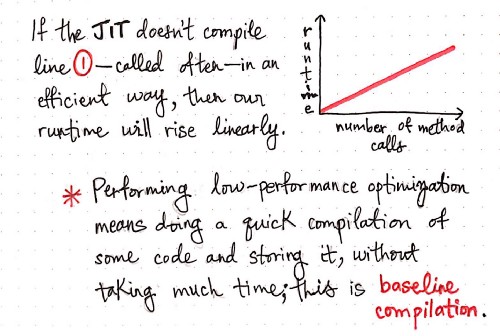 If the JIT doesn't compile
line ①—called often—in an
efficient way, then our
runtime will rise linearly.
runtime
number of method
calls
* Performing low-performance optimization
means doing a quick compilation of
some code and storing it, without
taking much time; this is baseline
compilation.